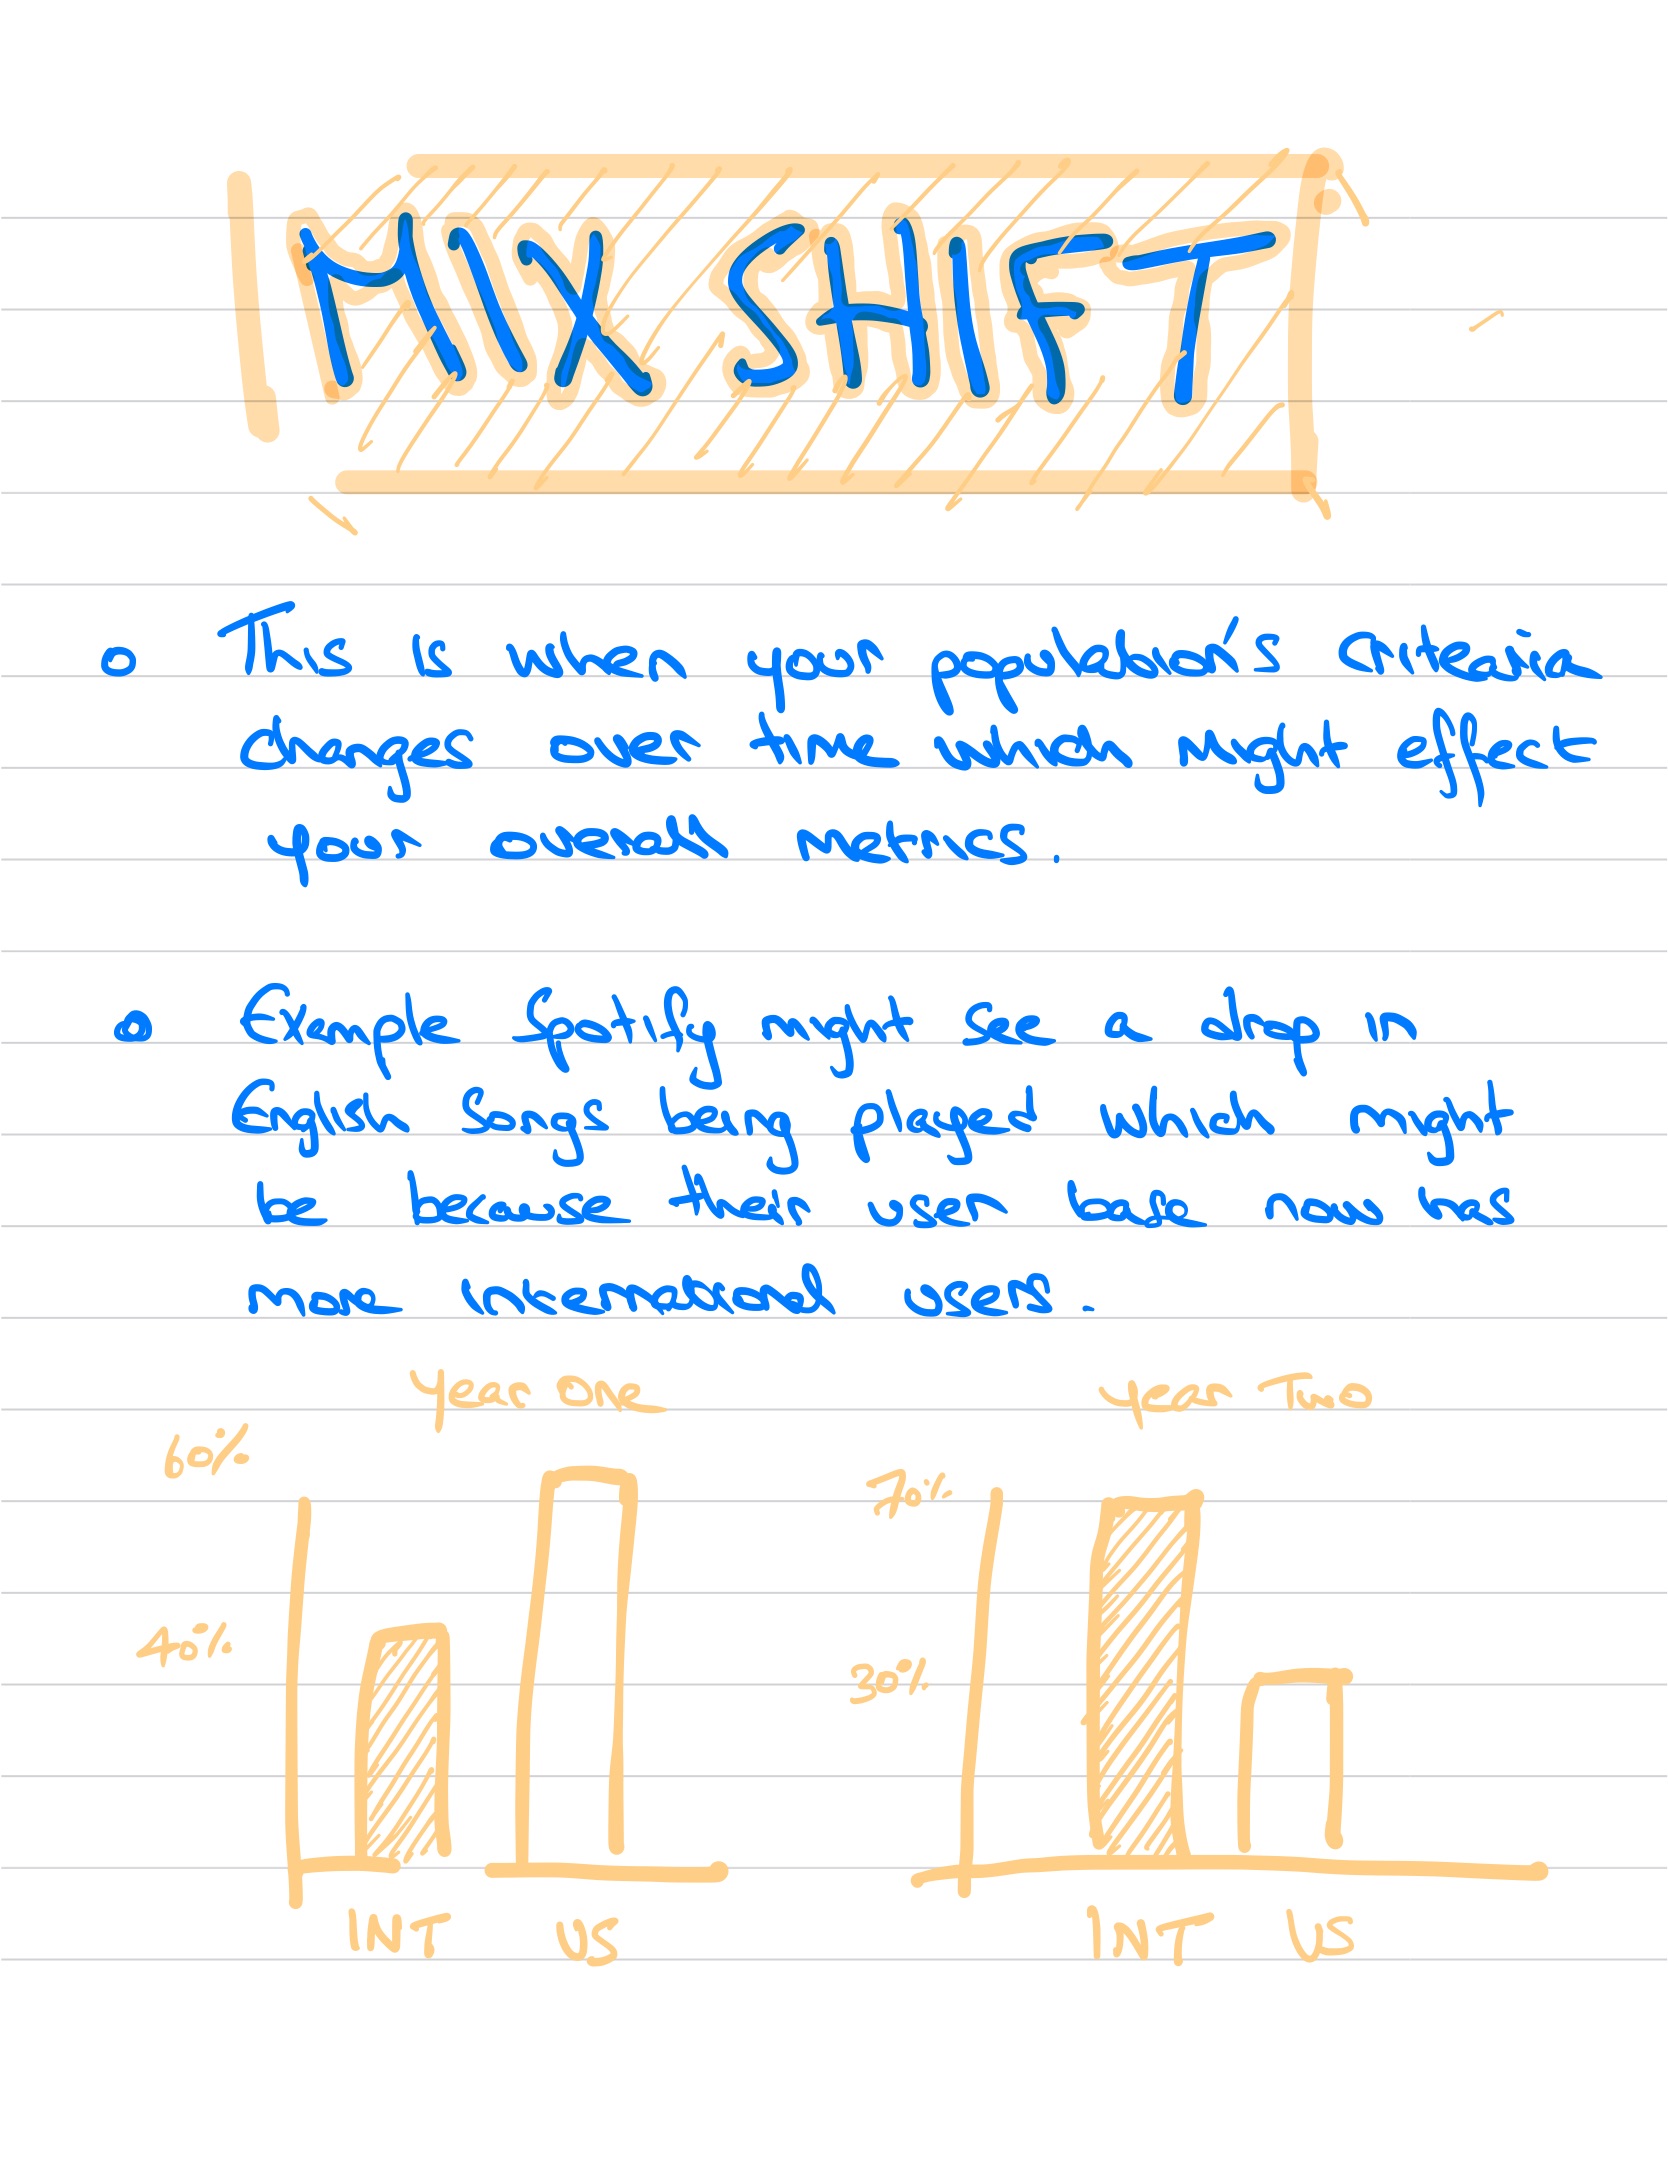 MIX SHIFT
This is when your population's criteria
changes over time which might effect
your overall metrics.
Example Spotify might see a drop in
English songs being played which might
be because their user base now has
more international users.
Year One
Year Two
60%
40%
INT US
70%
30%
INT US